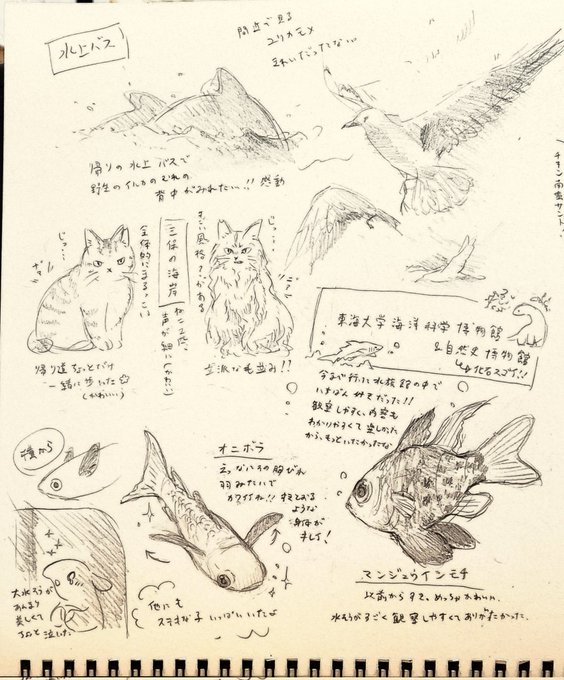 水上バス
間近で見る
ユリカモメ
きれいだってない
帰りの水上バスで
野生のイルカの
背中がみれたい!! 感動
じっ…
全体的にまるっこい
三保の海岸
すごい風格がある
じっ…
帰り道ちょっとだけ
一緒に歩いた
(かわいい)
立派な毛並み!!
東海大学海洋科学博物館
&自然史博物館
化石スゴイ!!
今まで行った水族館の中で
いちばん
観察しやすく、内容も
わかりやすくて楽しかった
から、もっといたかったな
後から
オニボラ
羽みたいで
すきとおる
ような
身体が
キレイ!
大水そうが
あんまり
美しくて
ちょっと泣いた
他にも
ステキな子いっぱいいたよ
マンジュウイシモチ
以前からすき、めっちゃかわいい、
水そうがすごく観察しやすくてありがたかった。